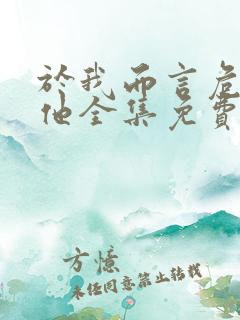 於我而言危
他全集免费
方憶
未经同意禁止转载